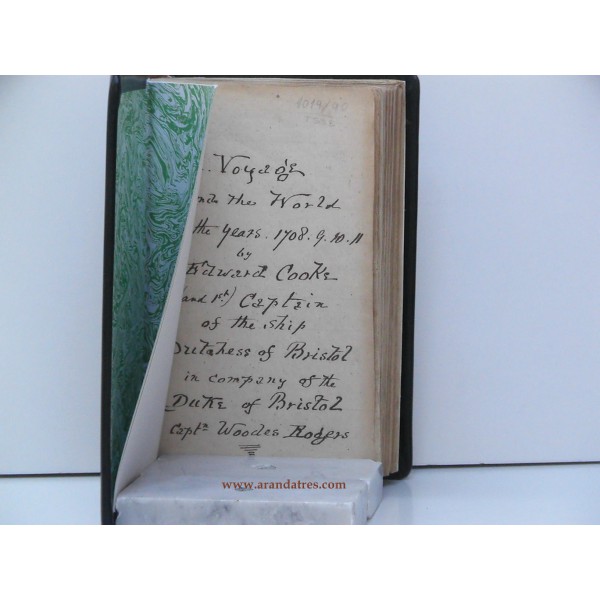 1019/90
Voyage
the World
the years. 1708. 9. 10. 11
by
Edward Cooke
and 1st) Captain
of the ship
Dutchess of Bristol
in company of the
Duke of Bristol
Captn Woodes Rogers
www.arandatres.com